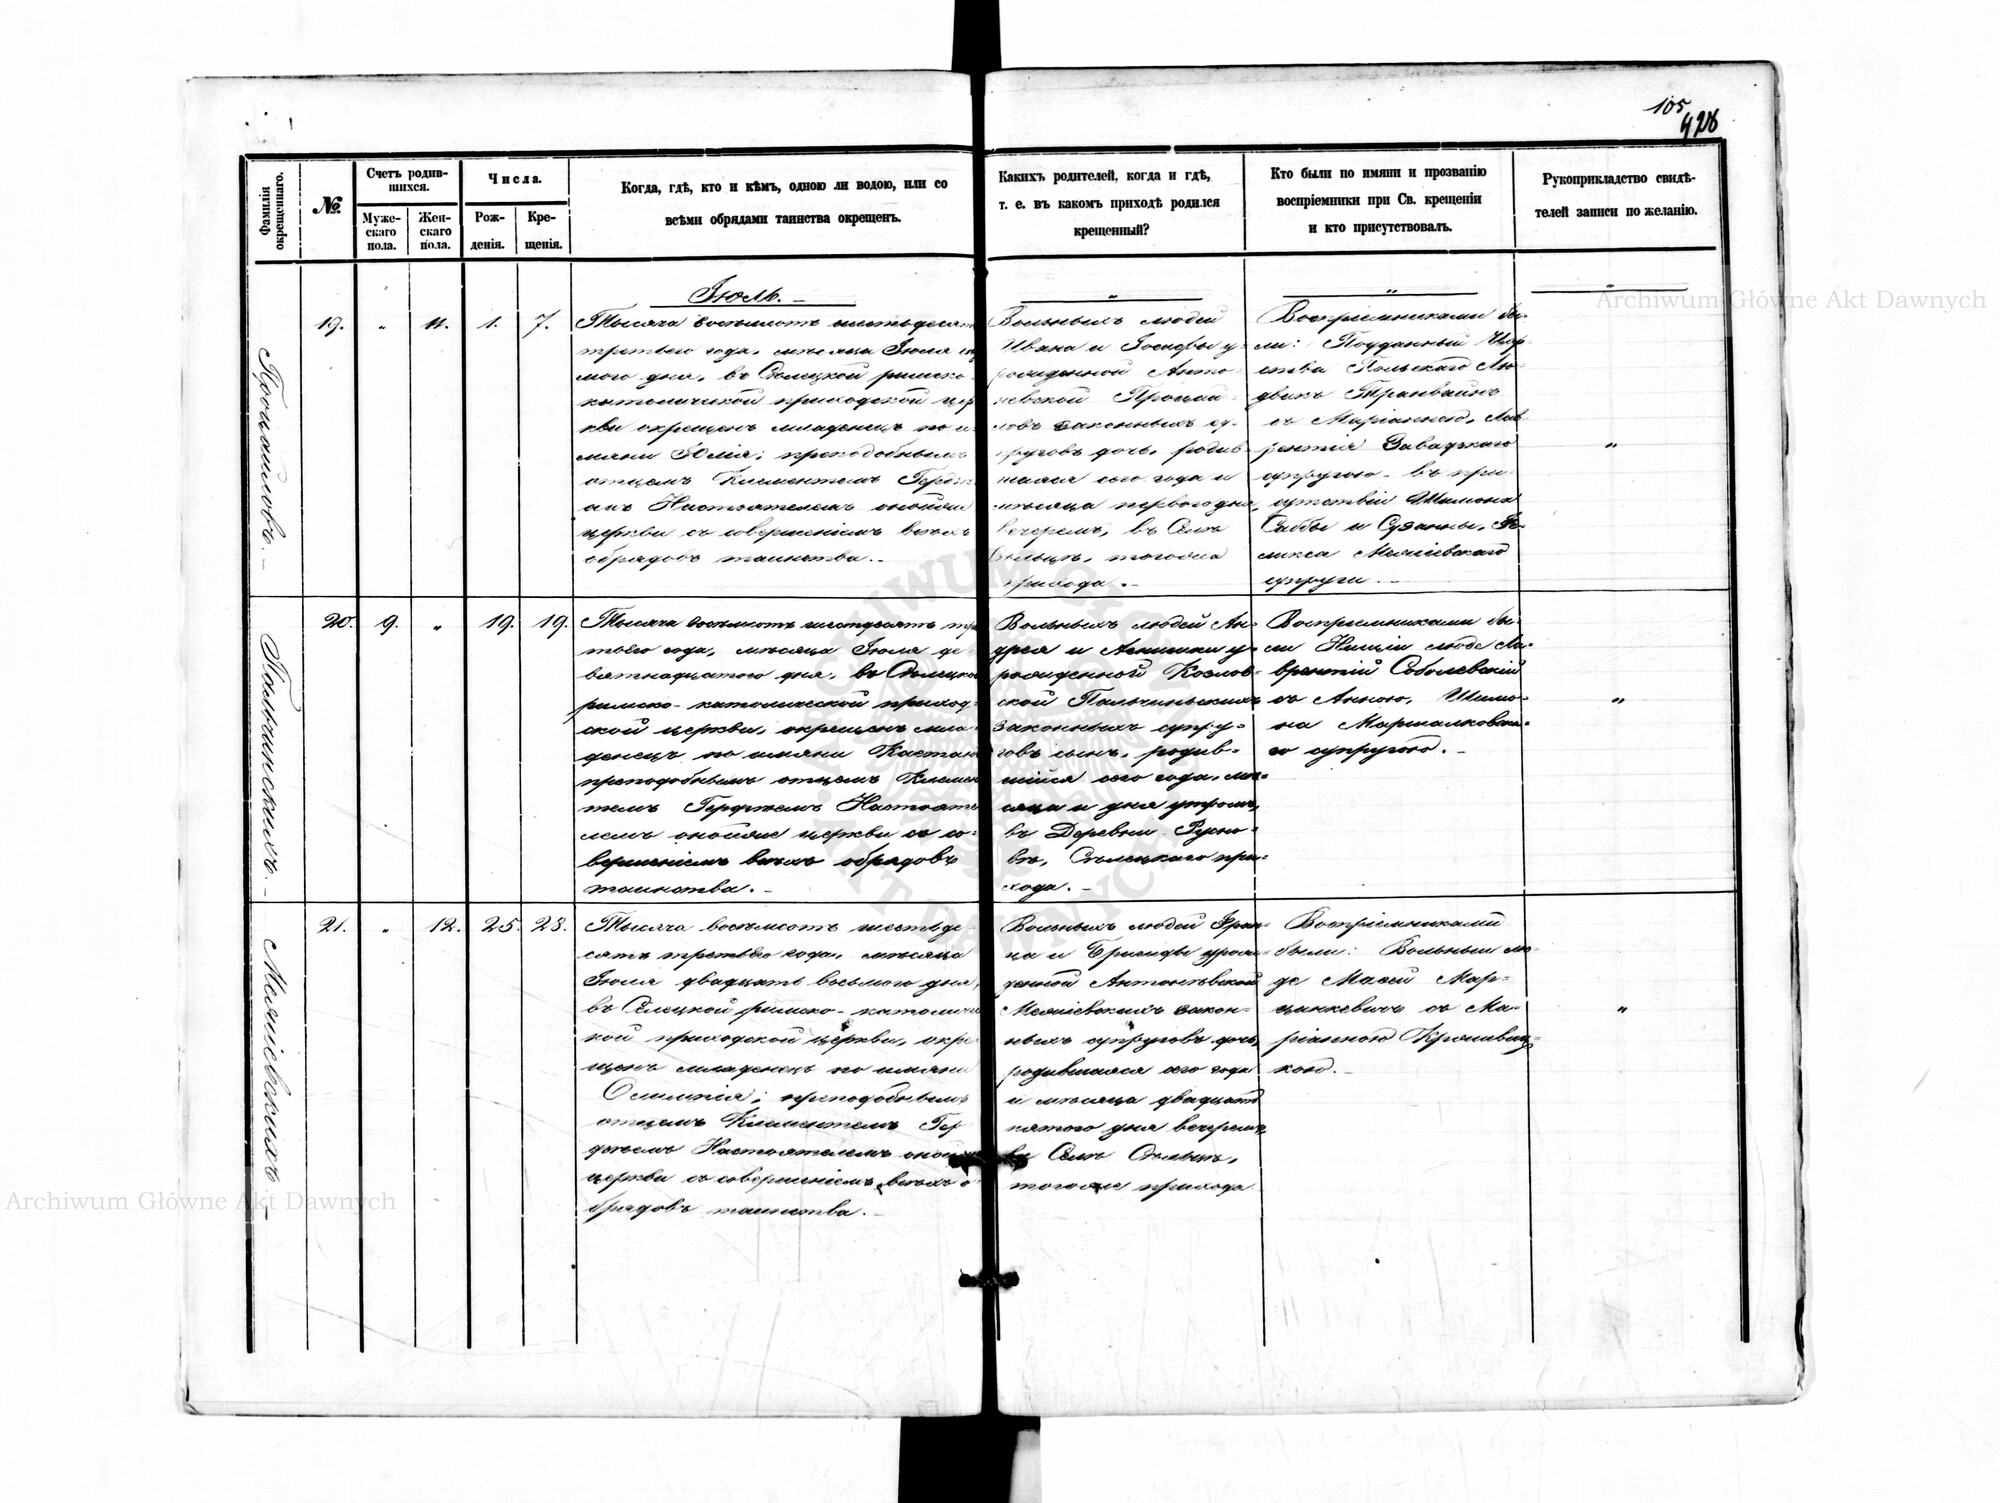 105
428
Фамилія окрещеннаго.
№
Счетъ родив-
шихся.
Муже-
скаго
пола.
Жен-
скаго
пола.
Числа.
Рож-
денія.
Кре-
щенія.
Когда, гдѣ, кто и кѣмъ, одною ли водою, или со
всѣми обрядами таинства окрещенъ.
Какихъ родителей, когда и гдѣ,
т. е. въ какомъ приходѣ родился
крещенный?
Кто были по имяни и прозванію
воспріемники при Св. крещеніи
и кто присутствовалъ.
Рукоприкладство свидѣ-
телей записи по желанію.
Іюль.
19. " 11. 1. 7.
Тысяча восемьсотъ шестьдесят
третьего года, мѣсяца Іюля
мого дня, въ Сѣлецкой римско-
католической приходской цер
кви окрещенъ младенецъ по и-
мяни Юлія; преподобнымъ
отцемъ Клементемъ
Настоятелемъ онойже
церкви съ совершеніемъ всѣхъ
обрядовъ таинства. –
Вольныхъ людей
Ивана и Іосифы у-
рожденной Анто-
невской
законныхъ су-
пруговъ дочь, родив-
шаяся сего года и
мѣсяца перваго дня
вечеромъ, въ Селѣ
тогоже
прихода. –
Воспріемниками бы-
ли: Подданный Цар-
ства Польскаго Лю-
двикъ
съ Маріанною, Лав-
рентія Завадзкаго
супругою – въ при-
сутствіи Шимона
и Сузанны, Фе-
ликса
супруги. –
"
20. 9. " 19. 19.
Тысяча восемьсотъ шестдесятъ тре
тьего года, мѣсяца Іюля де-
вятнадцатого дня, въ Сѣлецкой
римско-католической приход-
ской церкви, окрещенъ мла-
денецъ по имяни Каетанъ
преподобнымъ отцемъ Клемен
темъ Настояте
лемъ онойже церкви съ со-
вершеніемъ всѣхъ обрядовъ
таинства. –
Вольныхъ людей Ан-
дрея и Агнишки у-
рожденной Козлов-
ской
законныхъ супру-
говъ сынъ, родив-
шійся сего года, мѣ-
сяца и дня утромъ,
въ Деревни Русно-
вѣ, Сѣлецкаго при-
хода. –
Воспріемниками бы-
ли люде Ла-
врентій Соболевскій
съ Анною, Шимо-
на Маршалковска-
го супругою. –
"
21. " 12. 25. 28.
Тысяча восемьсотъ шестьде-
сятъ третьего года, мѣсяца
Іюля двадцать восьмого дня,
въ Сѣлецкой римско-католиче
кой приходской церкви, окре
щенъ младенецъ по имяни
Олимпія; преподобнымъ
отцемъ Клементемъ
Настоятелемъ онойже
церкви съ совершеніемъ всѣхъ о-
брядовъ таинства. –
Вольныхъ людей Фран-
ца и Бригиды урож-
денной Антоневской
закон-
ныхъ супруговъ дочь,
родившаяся сего года
и мѣсяца двадцать
пятого дня вечеромъ
въ Селѣ
тогоже прихода
Воспріемниками
были: Вольныи лю-
де Масей Мар-
цинкевичъ съ Ма-
ріанною
кою. –
"
Archiwum Główne Akt Dawnych
Archiwum Główne Akt Dawnych